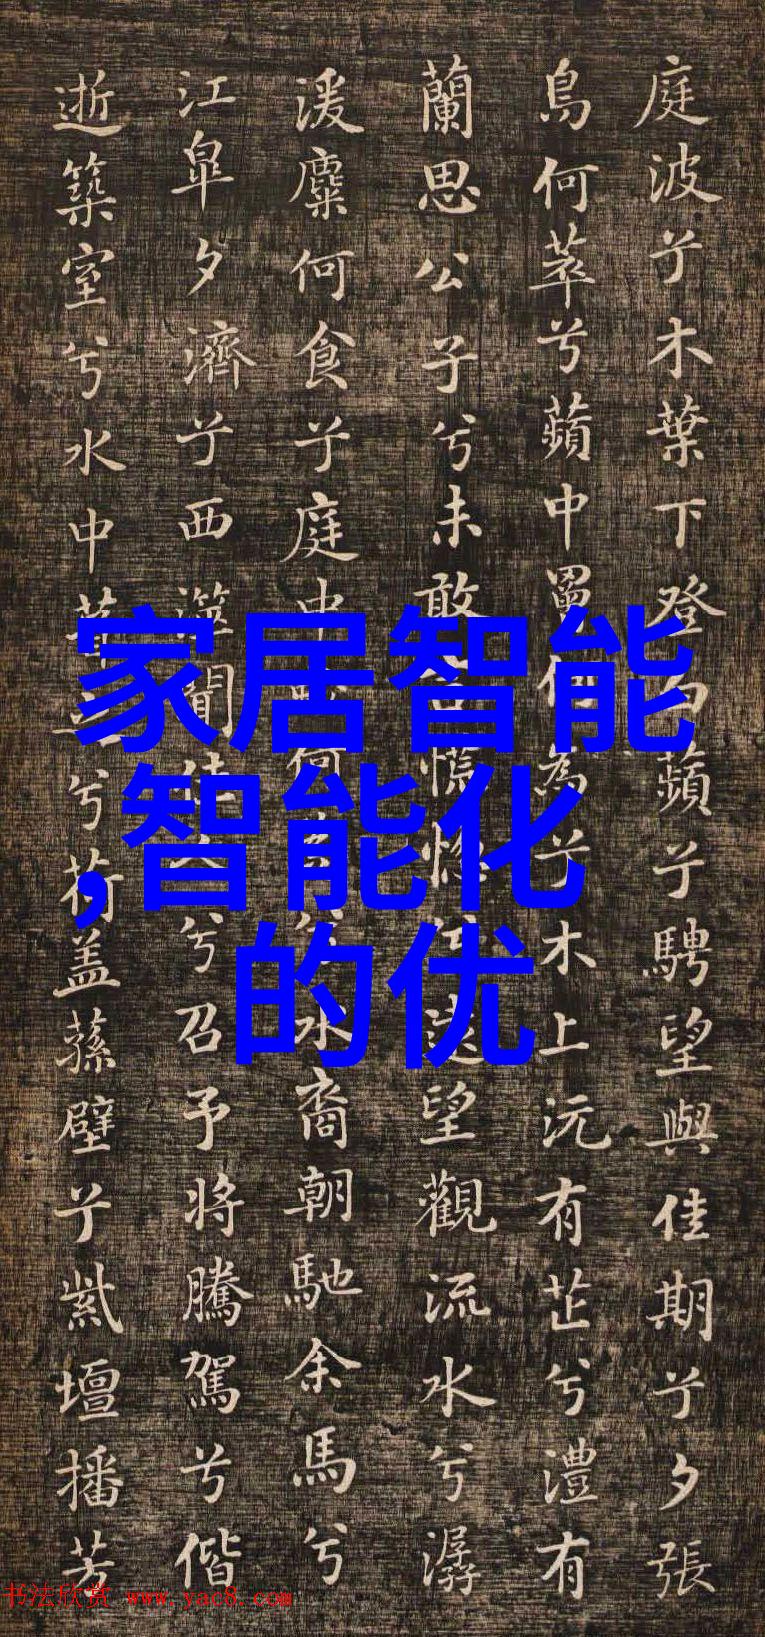 庭波兮木葉下登白蘋兮騁望與佳期兮夕張
鳥何萃兮蘋中罾何為兮木上沅有芷兮澧有
蘭思公子兮未敢言慌惚兮遠望觀流水兮潺
湲麋何食兮庭中蛟何為兮水裔朝馳余馬兮
江皐夕濟兮西澨聞佳人兮召予將騰駕兮偕
逝築室兮水中葺之兮荷盖蓀壁兮紫壇播芳
家居智能
,智能化
的优
书法欣赏 www.yac8.com